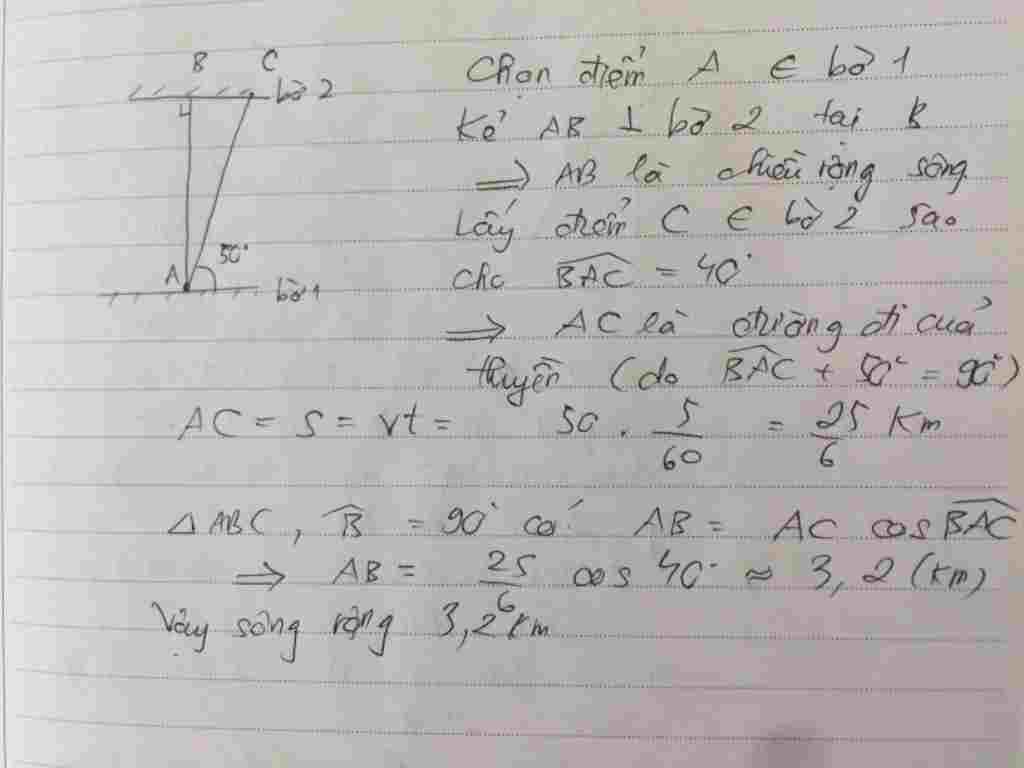 B C
bờ 2
50°
A
bờ 1
Chọn điểm A ∈ bờ 1
Kẻ AB ⊥ bờ 2 tại B
⇒ AB là chiều rộng sông
Lấy điểm C ∈ bờ 2 sao
cho \widehat{BAC} = 40°
⇒ AC là đường đi của
thuyền (do \widehat{BAC} + 50° = 90°)
AC = S = vt = 50 . 5/60 = 25/6 Km
△ABC, \widehat{B} = 90° có AB = AC cos \widehat{BAC}
⇒ AB = 25/6 cos 40° ≈ 3,2 (Km)
Vậy sông rộng 3,2 Km